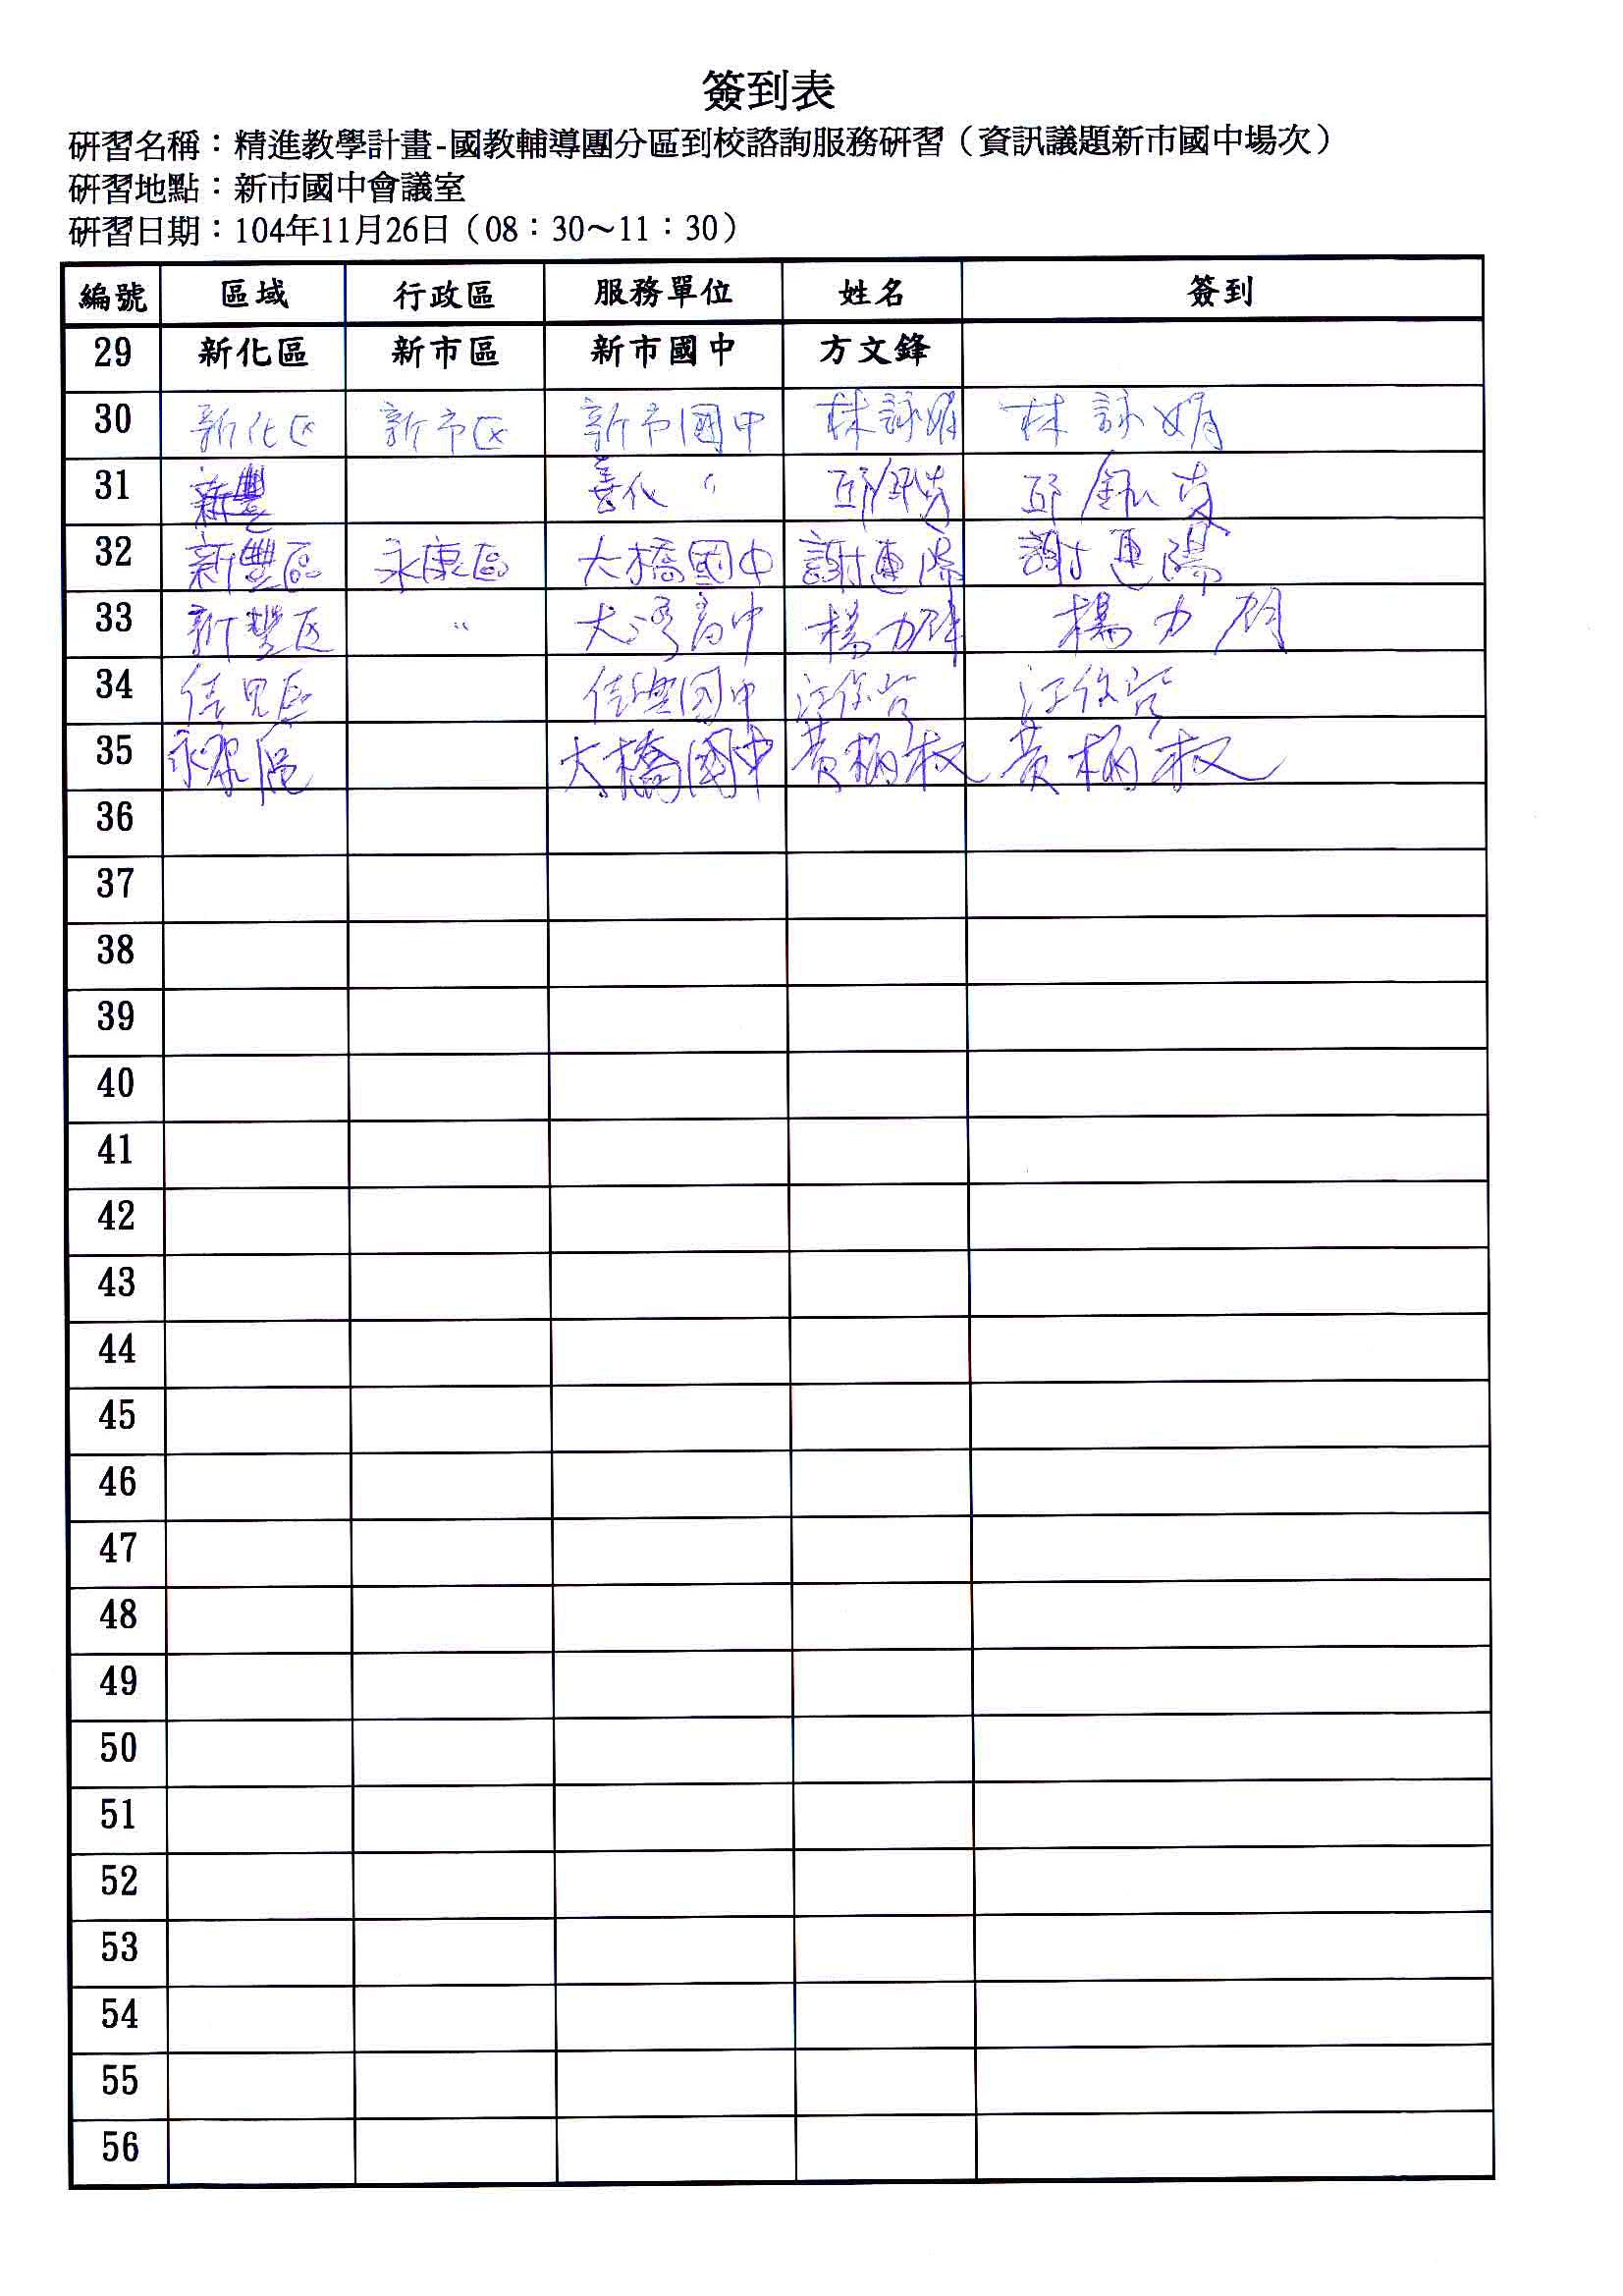 簽到表
研習名稱：精進教學計畫-國教輔導團分區到校諮詢服務研習（資訊議題新市國中場次）
研習地點：新市國中會議室
研習日期：104年11月26日（08：30～11：30）
編號 區域 行政區 服務單位 姓名 簽到
29 新化區 新市區 新市國中 方文鋒
30 新化区 新市区 新市國中 林詠娟 林詠娟
31 新豐 善化 〃 邱
32 新豐區 永康區 大橋國中 謝連陽 謝連陽
33 新豐区 〃 大灣高中 楊力 楊力
34 佳里區 国中 江俊 江俊
35 永康區 大橋國中 黃柄 黃柄
36
37
38
39
40
41
42
43
44
45
46
47
48
49
50
51
52
53
54
55
56